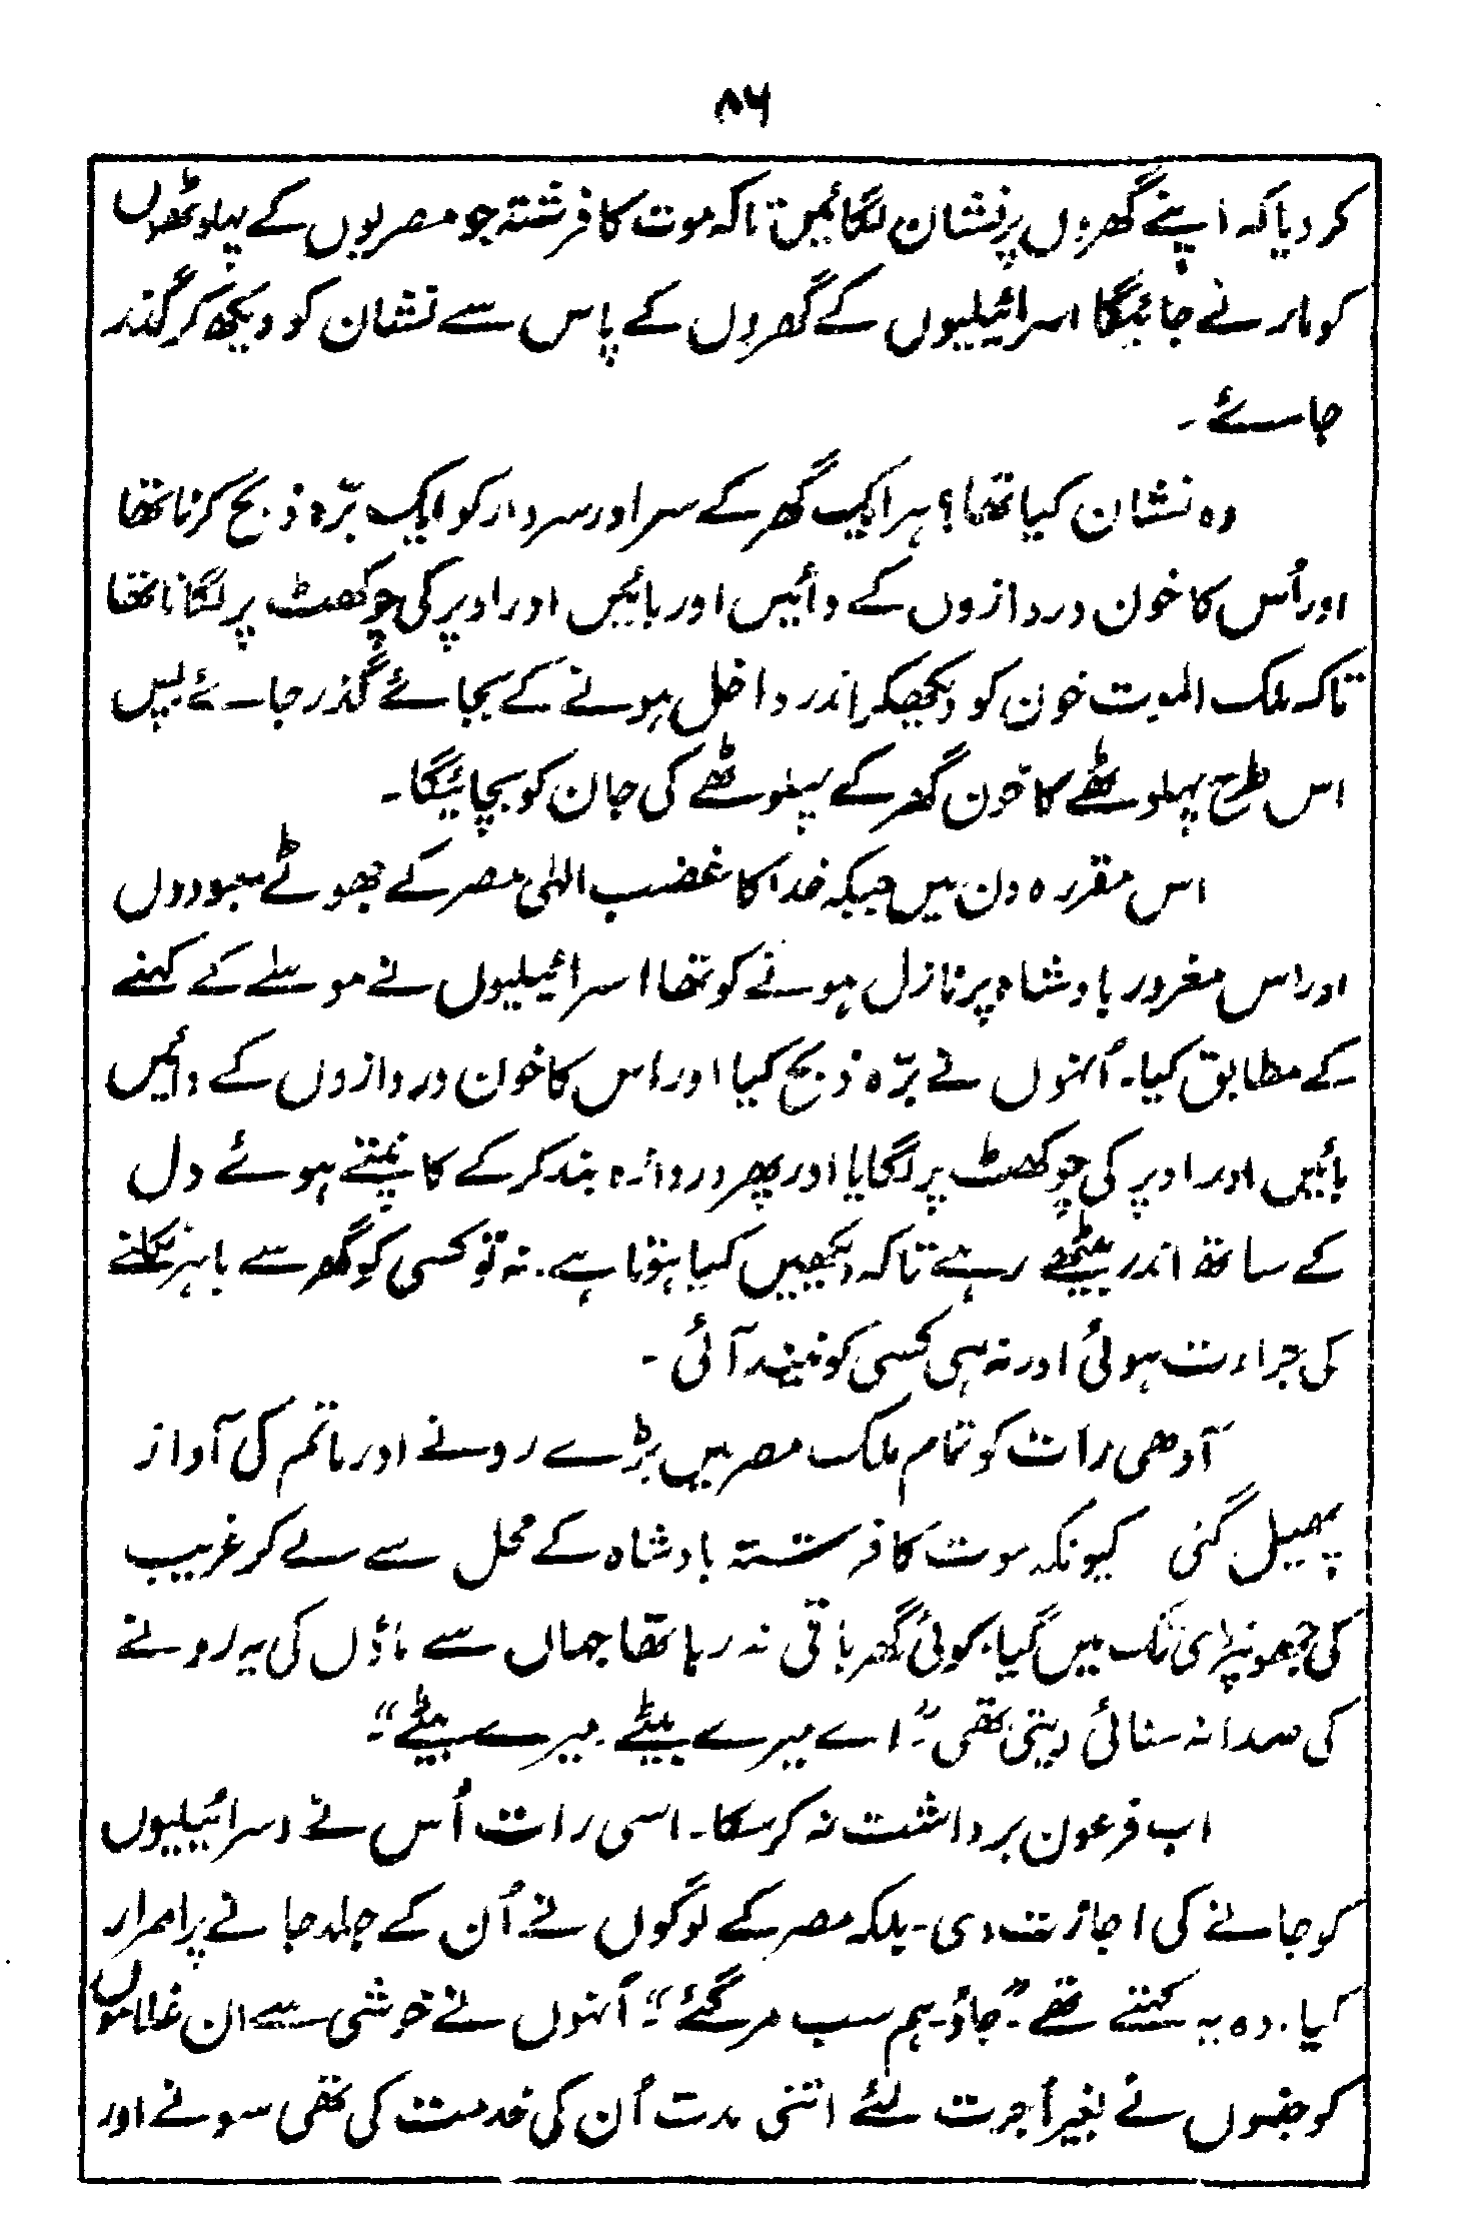 ۸۶
کر دیا کہ اپنے گھروں پر نشان لگائیں تاکہ موت کا فرشتہ جو مصریوں کے پہلوٹھوں
کو مارنے جائیگا اسرائیلیوں کے گھروں کے پاس سے نشان کو دیکھ کر گذر
جائے۔
وہ نشان کیا تھا؟ ہر ایک گھر کے سر اور سردار کو ایک برّہ ذبح کرنا تھا
اور اُس کا خون دروازوں کے دائیں اور بائیں اور اوپر کی چوکھٹ پر لگانا تھا
تاکہ ملک الموت خون کو دیکھکر اندر داخل ہونے کے بجائے گذر جائے پس
اس طرح پہلوٹھے کا خون گھر کے پہلوٹھے کی جان کو بچائیگا۔
اس مقررہ دن میں جبکہ خدا کا غضب الہٰی مصر کے جھوٹے معبودوں
اور اس مغرور بادشاہ پر نازل ہونے کو تھا اسرائیلیوں نے موسےٰ کے کہنے
کے مطابق کیا۔ اُنہوں نے برّہ ذبح کیا اور اس کا خون دروازوں کے دائیں
بائیں اور اوپر کی چوکھٹ پر لگایا اور پھر دروازہ بند کر کے کانپتے ہوئے دل
کے ساتھ اندر بیٹھے رہے تاکہ دیکھیں کیا ہوتا ہے۔ نہ تو کسی کو گھر سے باہر نکلنے
کی جراءت ہوئی اور نہ ہی کسی کو نیند آئی۔
آدھی رات کو تمام ملک مصر میں بڑے رونے اور ماتم کی آواز
پھیل گئی کیونکہ موت کا فرشتہ بادشاہ کے محل سے لے کر غریب
کی جھونپڑی تک میں گیا۔ کوئی گھر باقی نہ رہا تھا جہاں سے ماؤں کی یہ رونے
کی صدا نہ سنائی دیتی تھی۔ "اے میرے بیٹے۔ میرے بیٹے"۔
اب فرعون برداشت نہ کر سکا۔ اسی رات اُس نے اسرائیلیوں
کو جانے کی اجازت دی۔ بلکہ مصر کے لوگوں نے اُن کے جلد جانے پر اصرار
کیا۔ وہ یہ کہتے تھے۔ "جاؤ۔ ہم سب مر گئے"۔ اُنہوں نے خوشی سے ان غلاموں
کو جنہوں نے بغیر اُجرت لئے اتنی مدت اُن کی خدمت کی تھی سونے اور